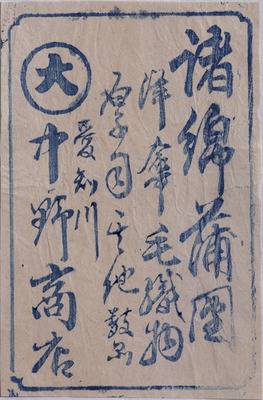 諸綿蒲團
洋傘毛織物
其他数品
愛知川
大
中野商店